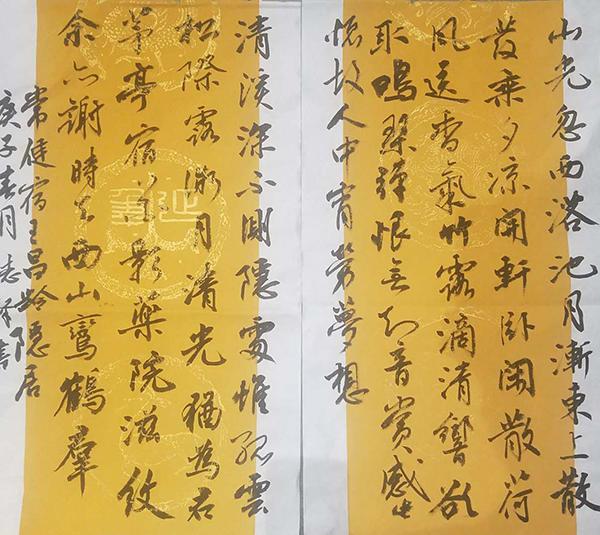 山光忽西落池月漸東上散
发乘夕凉開軒卧闲散荷
風送香氣竹露滴清響欲
取鳴琴彈恨無知音賞感此
懷故人中宵勞夢想
清溪深不測隱處惟孤雲
松際露微月清光猶為君
茅亭宿花影藥院滋紋
余亦謝時去西山鸞鶴羣
常建宿王昌龄隱居
庚子春月志書